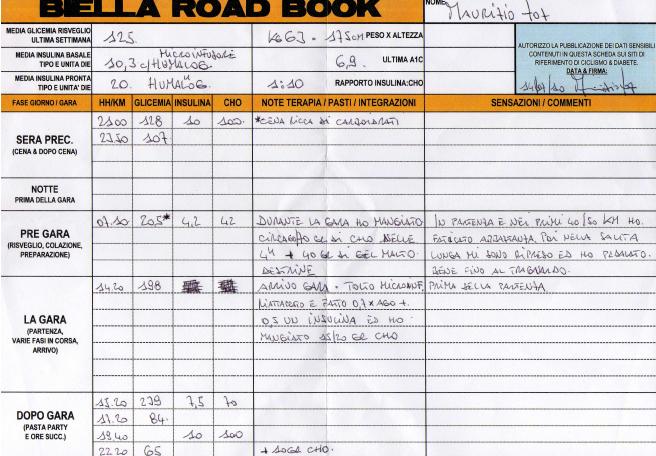 BIELLA ROAD BOOK
NOME Mauritio tot
MEDIA GLICEMIA RISVEGLIO ULTIMA SETTIMANA 125. KG 63 - 175 cm PESO X ALTEZZA
MEDIA INSULINA BASALE TIPO E UNITA' DIE 10,3 c/ MICROINFUSORE HUMALOG 6,9. ULTIMA A1C
MEDIA INSULINA PRONTA TIPO E UNITA' DIE 20. HUMALOG 1:10 RAPPORTO INSULINA:CHO
AUTORIZZO LA PUBBLICAZIONE DEI DATI SENSIBILI
CONTENUTI IN QUESTA SCHEDA SUI SITI DI
RIFERIMENTO DI CICLISMO & DIABETE.
DATA & FIRMA:
FASE GIORNO / GARA HH/KM GLICEMIA INSULINA CHO NOTE TERAPIA / PASTI / INTEGRAZIONI SENSAZIONI / COMMENTI
SERA PREC.
(CENA & DOPO CENA)
21.00 128 10 100. *CENA RICCA DI CARBOIDRATI
23.50 107.
NOTTE
PRIMA DELLA GARA
PRE GARA
(RISVEGLIO, COLAZIONE,
PREPARAZIONE)
07.10 205* 4,2 42 DURANTE LA GARA HO MANGIATO
CIRCA GR DI CHO NELLE
4H + 40 GR DI GEL MALTO
DESTRINE
IN PARTENZA E NEI PRIMI 40/50 KM HO.
FATICATO ABBASTANZA, POI NELLA SALITA
LUNGA MI SONO RIPRESO ED HO PEDALATO.
BENE FINO AL TRAGUARDO.
LA GARA
(PARTENZA,
VARIE FASI IN CORSA,
ARRIVO)
14.20 198 ARRIVO GARA - TOLTO MICROINF. PRIMA DELLA PARTENZA
RIATTACCATO E FATTO 0,7 X AGO +.
0,5 UN INSULINA ED HO
MANGIATO 15/20 GR CHO
DOPO GARA
(PASTA PARTY
E ORE SUCC.)
15.20 239 7,5 70
17.20 84.
19.40 10 100
22.20 65 + 10 GR CHO.